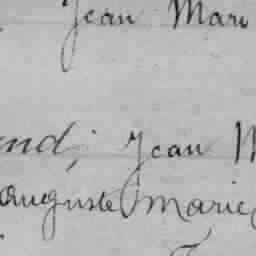 Jean Mari
end; Jean M
auguste Marie